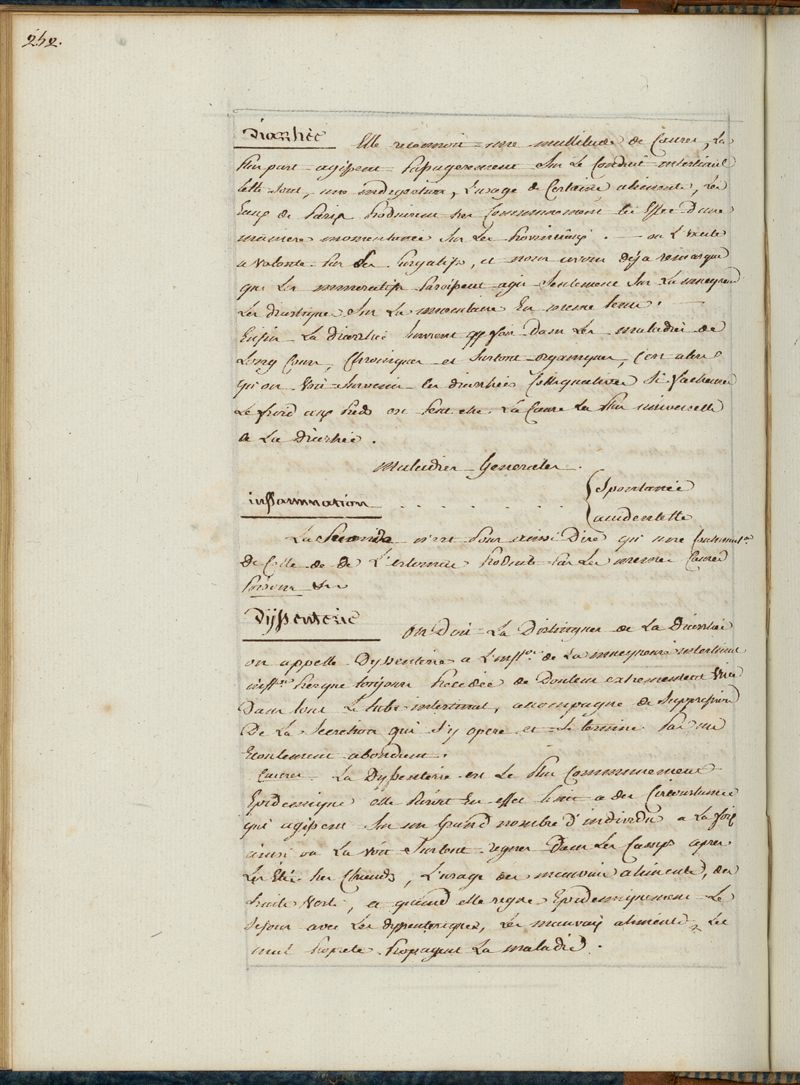 252.
Diarrhée Elle reconnoit une multitude de Causes, la
plus part agissent passagerement sur le Conduit intestinal
telle sont, une indigestion, l'usage de certains aliments, les
Eaux de Paris produisent tres communement cet effet d'une
maniere momentanée sur les provinciaux. — on l'excite
a volonté par des purgatifs, et nous avons deja remarqué
que les minoratifs paroissent agir seulement sur la muqueuse
les drastiques sur la musculaire en meme tems. —
Enfin la diarrhée survient qq fois dans les maladies de
long Cour, Chroniques et surtout organiques, C'en alors
qu'on voit survenir les diarrhées Colliquatives si facheuses
le froid aux pieds en peut etre la Cause la plus universelle
a la diarrhée.
Maladies Generales.
inflammation . . . . . . { Spontanée
{ accidentelle
La Seconde n'est pour ainsi dire qu'une Continuat.on
de Celle de de l'estomac produit par les memes Causes
poisons &c
Dyssenterie On Doit la Distinguer de la Diarrhée
on appelle Dyssenterie a l'inff.on de la muqueuse intestinale
inff.on presque toujours precedée de Douleur extremement vive
Dans tout le tube intestinal, accompagné de Suppression
De la Secretion qui s'y opere et se termine par un
ecoulement abondant.
Causes. La Dyssenterie est le plus Communement
Epidemique elle paroit en effet liée a des Circonstances
qui agissent sur un grand nombre d'individu a la fois
ainsi on la voit surtout regner dans les Camps apres
les Eté tres Chauds, l'usage des mauvais aliments, des
fruits verts, a quand elle regne Epidemiquement le
sejour avec les dyssenteriques, les mauvais aliments, la
mal propreté propagent la maladie.